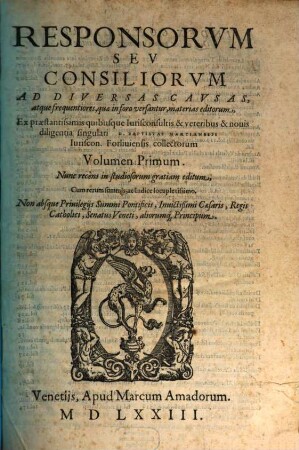 RESPONSORVM
SEV
CONSILIORVM
AD DIVERSAS CAVSAS,
atque frequentiores, quæ in foro versantur, materias editorum,
Ex præstantissimis quibusque Iurisconsultis & veteribus & nouis
diligentia singulari D. BAPTISTAE
Iuriscon. Forliuiensis collectorum
Volumen Primum.
Nunc recèns in studiosorum gratiam editum,
Cum rerum summis, atque Indice locupletissimo.
Non absque Priuilegijs Summi Pontificis, Inuictissimi Cæsaris, Regis
Catholici, Senatus Veneti, aliorumq; Principum.
Venetijs, Apud Marcum Amadorum.
M D LXXIII.